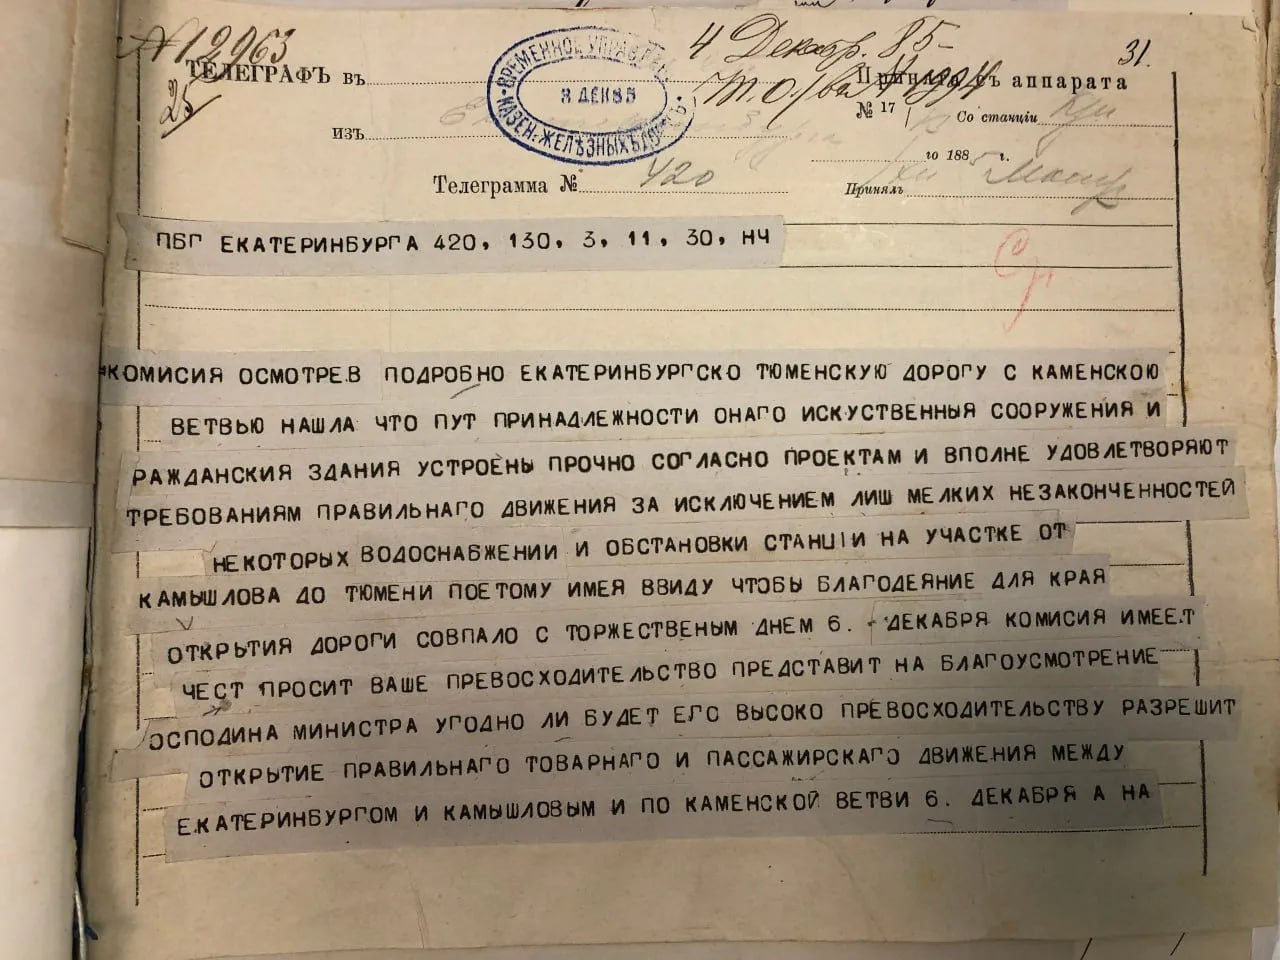 № 12963
4 Декабр. 85
31.
25
ТЕЛЕГРАФЪ въ
Принята съ аппарата
ВРЕМЕННОЕ УПРАВЛ.
КАЗЕН. ЖЕЛѢЗНЫХЪ ДОРОГЪ.
8 ДЕК 85
№ 17
Со станціи
изъ
го 1885 г.
Телеграмма № 420
Принялъ
ПБГ ЕКАТЕРИНБУРГА 420, 130, 3, 11, 30, НЧ
Ср
КОМИСИЯ ОСМОТРЕВ ПОДРОБНО ЕКАТЕРИНБУРГСКО ТЮМЕНСКУЮ ДОРОГУ С КАМЕНСКОЮ
ВЕТВЬЮ НАШЛА ЧТО ПУТ ПРИНАДЛЕЖНОСТИ ОНАГО ИСКУСТВЕННЫЯ СООРУЖЕНИЯ И
РАЖДАНСКИЯ ЗДАНИЯ УСТРОЕНЫ ПРОЧНО СОГЛАСНО ПРОЕКТАМ И ВПОЛНЕ УДОВЛЕТВОРЯЮТ
ТРЕБОВАНИЯМ ПРАВИЛЬНАГО ДВИЖЕНИЯ ЗА ИСКЛЮЧЕНИЕМ ЛИШ МЕЛКИХ НЕЗАКОНЧЕННОСТЕЙ
НЕКОТОРЫХ ВОДОСНАБЖЕНИИ И ОБСТАНОВКИ СТАНЦІИ НА УЧАСТКЕ ОТ
КАМЫШЛОВА ДО ТЮМЕНИ ПОЕТОМУ ИМЕЯ ВВИДУ ЧТОБЫ БЛАГОДЕЯНИЕ ДЛЯ КРАЯ
ОТКРЫТИЯ ДОРОГИ СОВПАЛО С ТОРЖЕСТВЕНЫМ ДНЕМ 6. ДЕКАБРЯ КОМИСИЯ ИМЕЕТ
ЧЕСТ ПРОСИТ ВАШЕ ПРЕВОСХОДИТЕЛЬСТВО ПРЕДСТАВИТ НА БЛАГОУСМОТРЕНИЕ
ОСПОДИНА МИНИСТРА УГОДНО ЛИ БУДЕТ ЕГО ВЫСОКО ПРЕВОСХОДИТЕЛЬСТВУ РАЗРЕШИТ
ОТКРЫТИЕ ПРАВИЛЬНАГО ТОВАРНАГО И ПАССАЖИРСКАГО ДВИЖЕНИЯ МЕЖДУ
ЕКАТЕРИНБУРГОМ И КАМЫШЛОВЫМ И ПО КАМЕНСКОЙ ВЕТВИ 6. ДЕКАБРЯ А НА